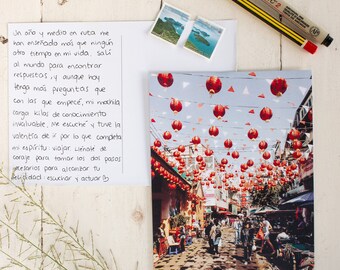 Un año y medio en ruta me
han enseñado más que ningún
otro tiempo en mi vida. Salí
al mundo para encontrar
respuestas, y aunque hoy
tengo más preguntas que
con las que empecé, mi mochila
carga kilos de conocimiento
invaluable. Me escuché y tuve la
valentía de ir por lo que completa
mi espíritu: viajar. Llénate de
coraje para tomar los dos pasos
necesarios para alcanzar tu
felicidad: escuchar y actuar